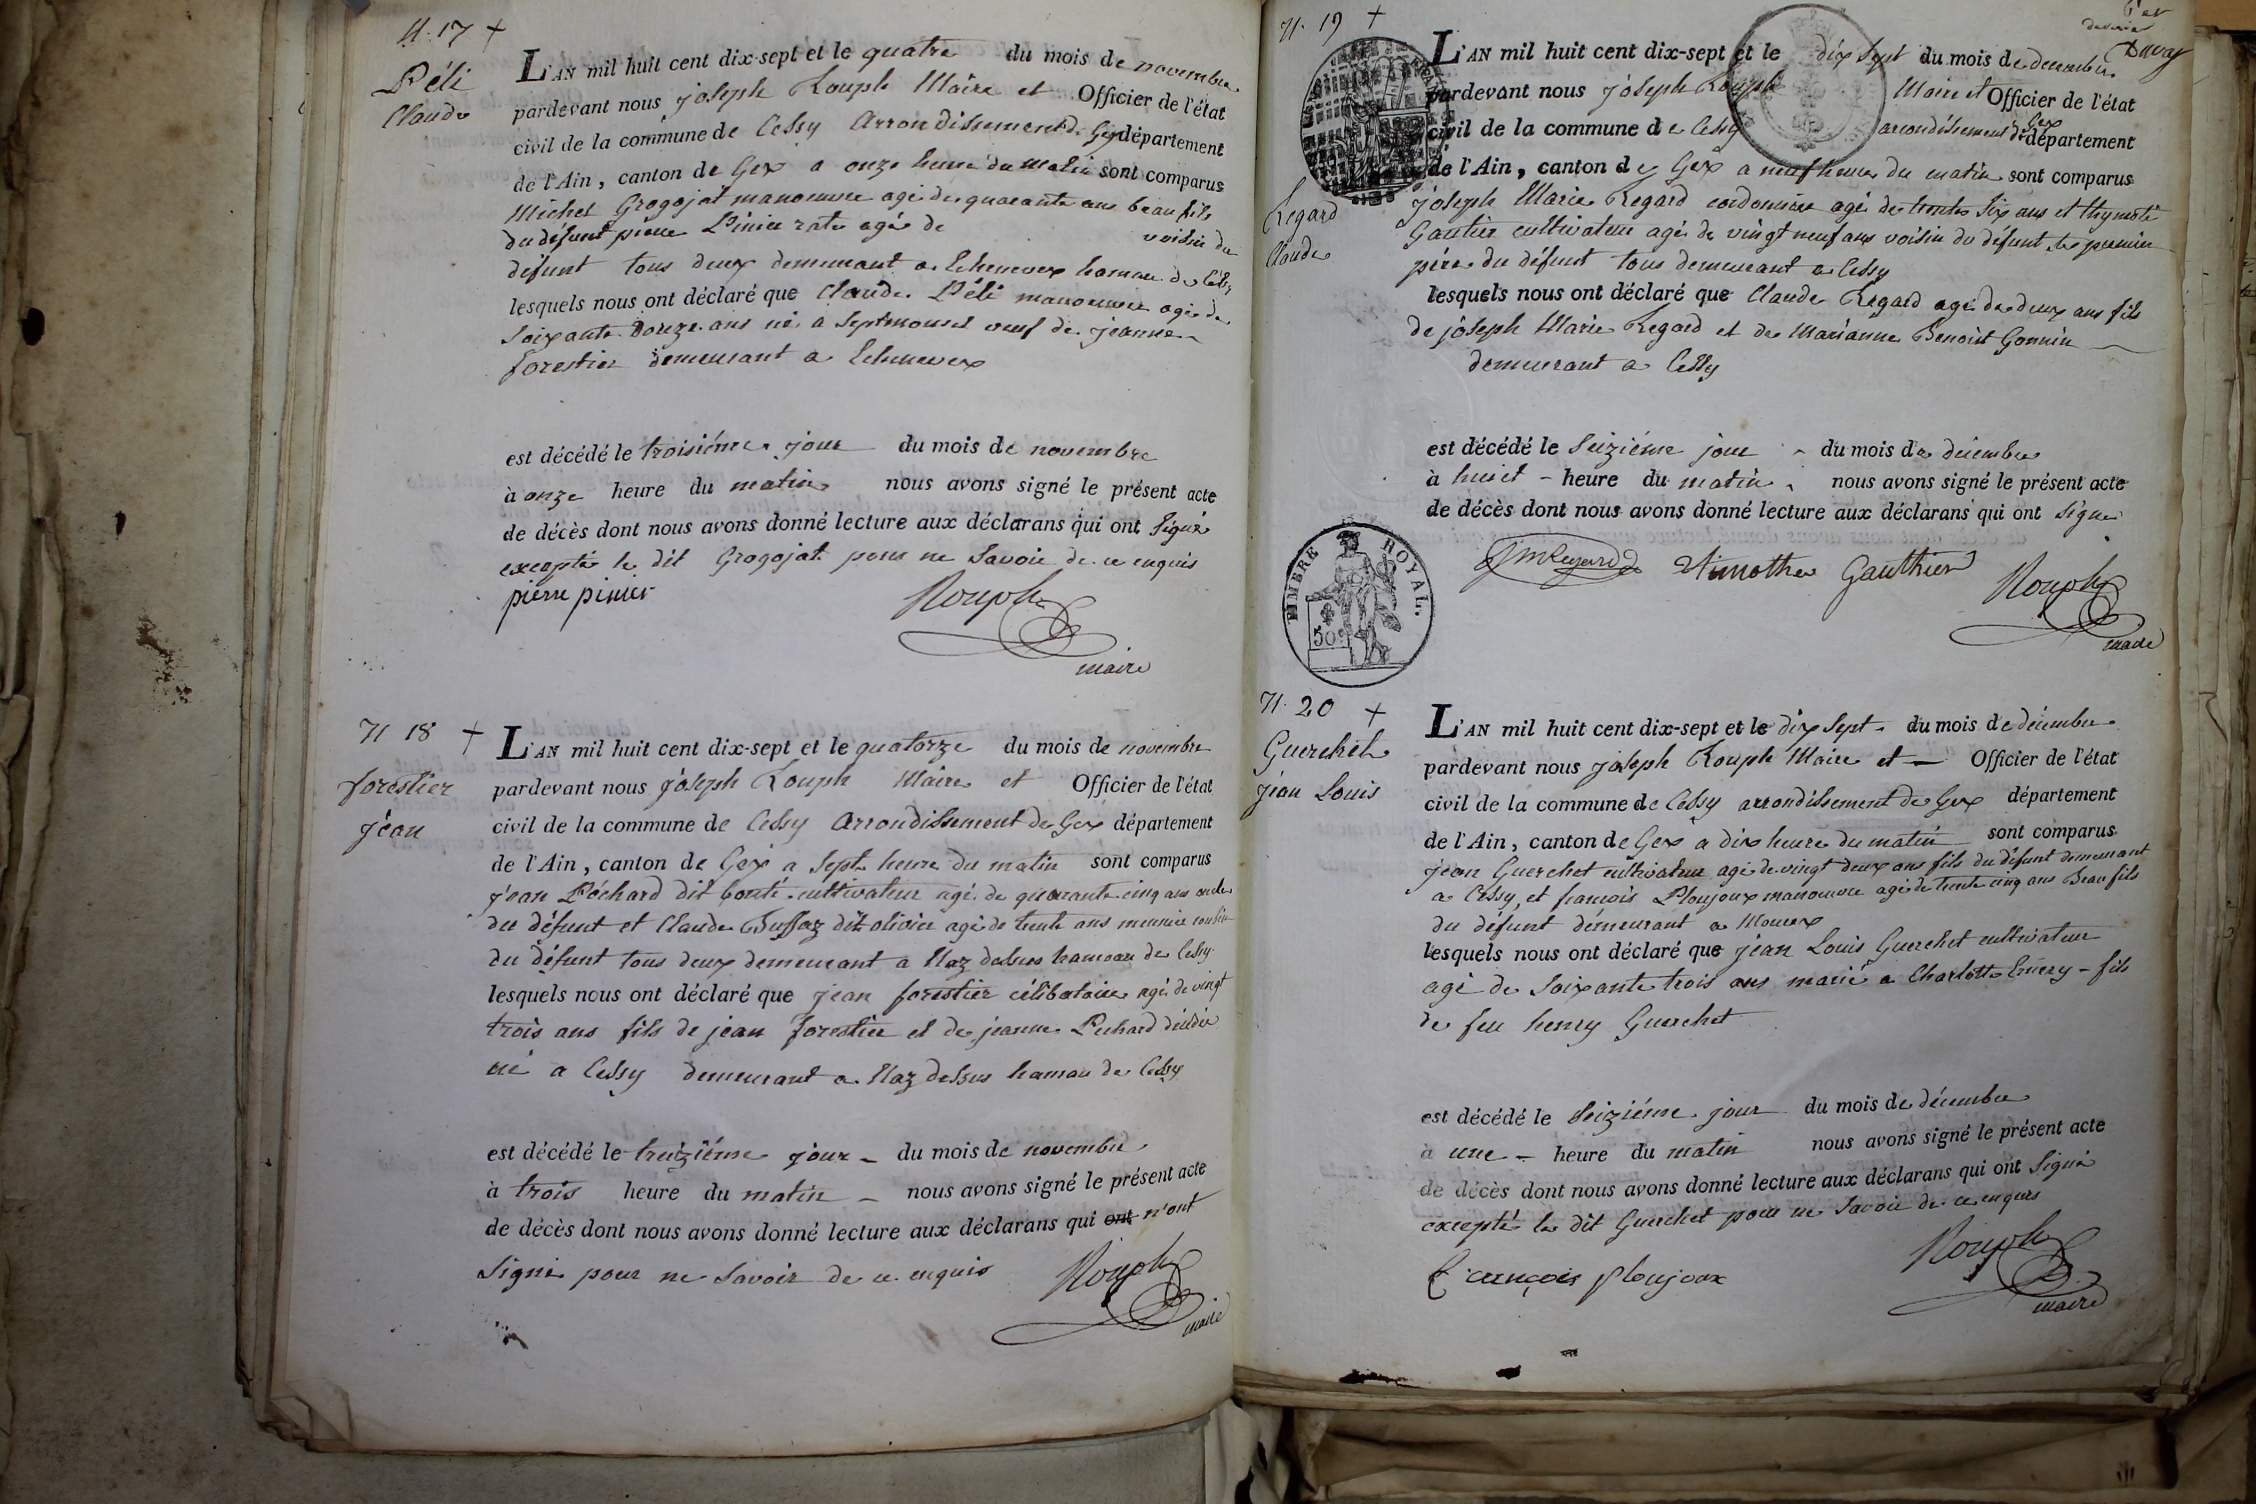 N. 17 +
Péli
Claude
L'AN mil huit cent dix-sept et le quatre du mois de novembre
pardevant nous joseph Rouph Maire et Officier de l'état
civil de la commune de Cessy Arrondissement de Gex département
de l'Ain, canton de Gex a onze heure du matin sont comparus
Michel Grogojat manoeuvre agé de quarante ans beau fils
du défunt pierre Pinier rate agé de voisin du
défunt tous deux demeurant a Echenevex hameau de Cessy
lesquels nous ont déclaré que Claude Péli manoeuvre agé de
soixante douze ans né a Septmoncel veuf de jeanne
forestier demeurant a Echenevex
est décédé le troisiéme jour du mois de novembre
à onze heure du matin nous avons signé le présent acte
de décès dont nous avons donné lecture aux déclarans qui ont signé
excepté le dit Grogojat pour ne savoir de ce enquis
pierre pinier Rouph
maire
N 18 +
forestier
jean
L'AN mil huit cent dix-sept et le quatorze du mois de novembre
pardevant nous joseph Rouph Maire et Officier de l'état
civil de la commune de Cessy Arrondissement de Gex département
de l'Ain, canton de Gex a sept heure du matin sont comparus
jean Péchard dit Conté cultivateur agé de quarante cinq ans oncle
du défunt et Claude Buffaz dit olivier agé de trente ans meunier cousin
du défunt tous deux demeurant a Naz dessus hameau de Cessy
lesquels nous ont déclaré que jean forestier célibataire agé de vingt
trois ans fils de jean forestier et de jeanne Pechard
né a Cessy demeurant a Naz dessus hamau de Cessy
est décédé le treiziéme jour du mois de novembre
à trois heure du matin nous avons signé le présent acte
de décès dont nous avons donné lecture aux déclarans qui ont n'ont
signé pour ne savoir de ce enquis Rouph
maire
N. 19 +
Regard
Claude
L'AN mil huit cent dix-sept et le dix sept du mois de decembre
pardevant nous joseph Rouph Maire et Officier de l'état
civil de la commune de Cessy arrondissement de Gex département
de l'Ain, canton de Gex a neuf heure du matin sont comparus
joseph Marie Regard cordonnier agé de trente six ans et thymoté
Gautier cultivateur agé de vingt neuf ans voisin du défunt le premier
père du défunt tous demeurant a Cessy
lesquels nous ont déclaré que Claude Regard agé de deux ans fils
de joseph Marie Regard et de Marianne Benoist Gonnin
demeurant a Cessy
est décédé le seiziéme jour du mois de décembre
à huit heure du matin nous avons signé le présent acte
de décès dont nous avons donné lecture aux déclarans qui ont signé
TIMBRE ROYAL.
50
JMRegard Timothe Gauthier Rouph
maire
N. 20 +
Guerchet
jean Louis
L'AN mil huit cent dix-sept et le dix sept du mois de décembre
pardevant nous joseph Rouph Maire et Officier de l'état
civil de la commune de Cessy arrondissement de Gex département
de l'Ain, canton de Gex a dix heure du matin sont comparus
jean Guerchet cultivateur agé de vingt deux ans fils du défunt demeurant
a Cessy, et francois Ploujoux manoeuvre agé de trente cinq ans Beau fils
du défunt démeurant a Mourex
lesquels nous ont déclaré que jean Louis Guerchet cultivateur
agé de soixante trois ans marié a Charlotte Emery fils
de feu henry Guerchet
est décédé le seiziéme jour du mois de décembre
à une heure du matin nous avons signé le présent acte
de décès dont nous avons donné lecture aux déclarans qui ont signé
excepté le dit Guerchet pour ne savoir de ce enquis
francois ploujoux Rouph
maire